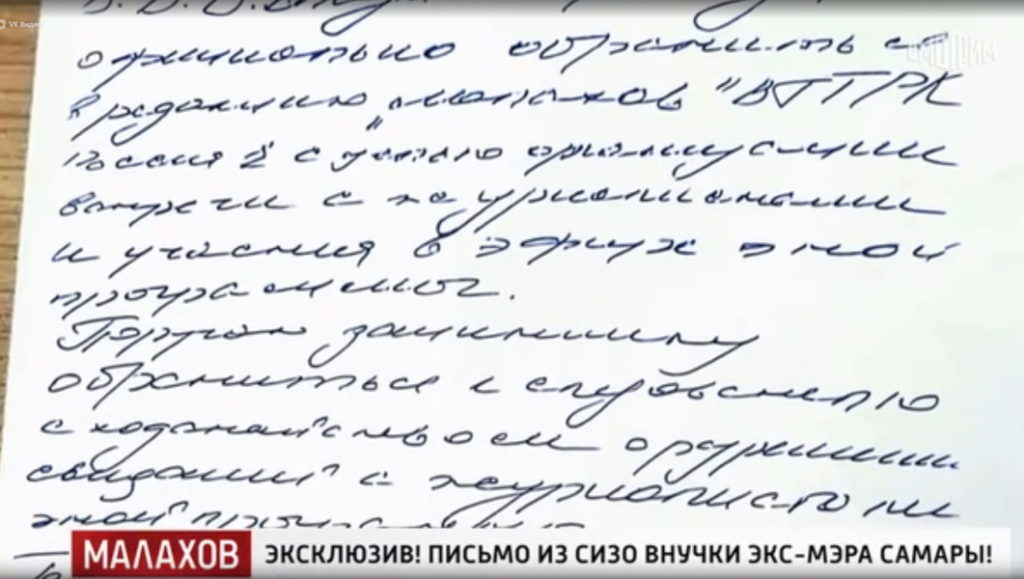 VK Видео
СМОТРИМ
официально обратиться
в редакцию „Малахов" ВГТРК
Россия 1 с целью организации
встречи с журналистами
и участия в эфирах этой
программы.
Поручаю защитнику
обратиться к следователю
с ходатайством о разрешении
свиданий с журналистом
этой программы
МАЛАХОВ
ЭКСКЛЮЗИВ! ПИСЬМО ИЗ СИЗО ВНУЧКИ ЭКС-МЭРА САМАРЫ!